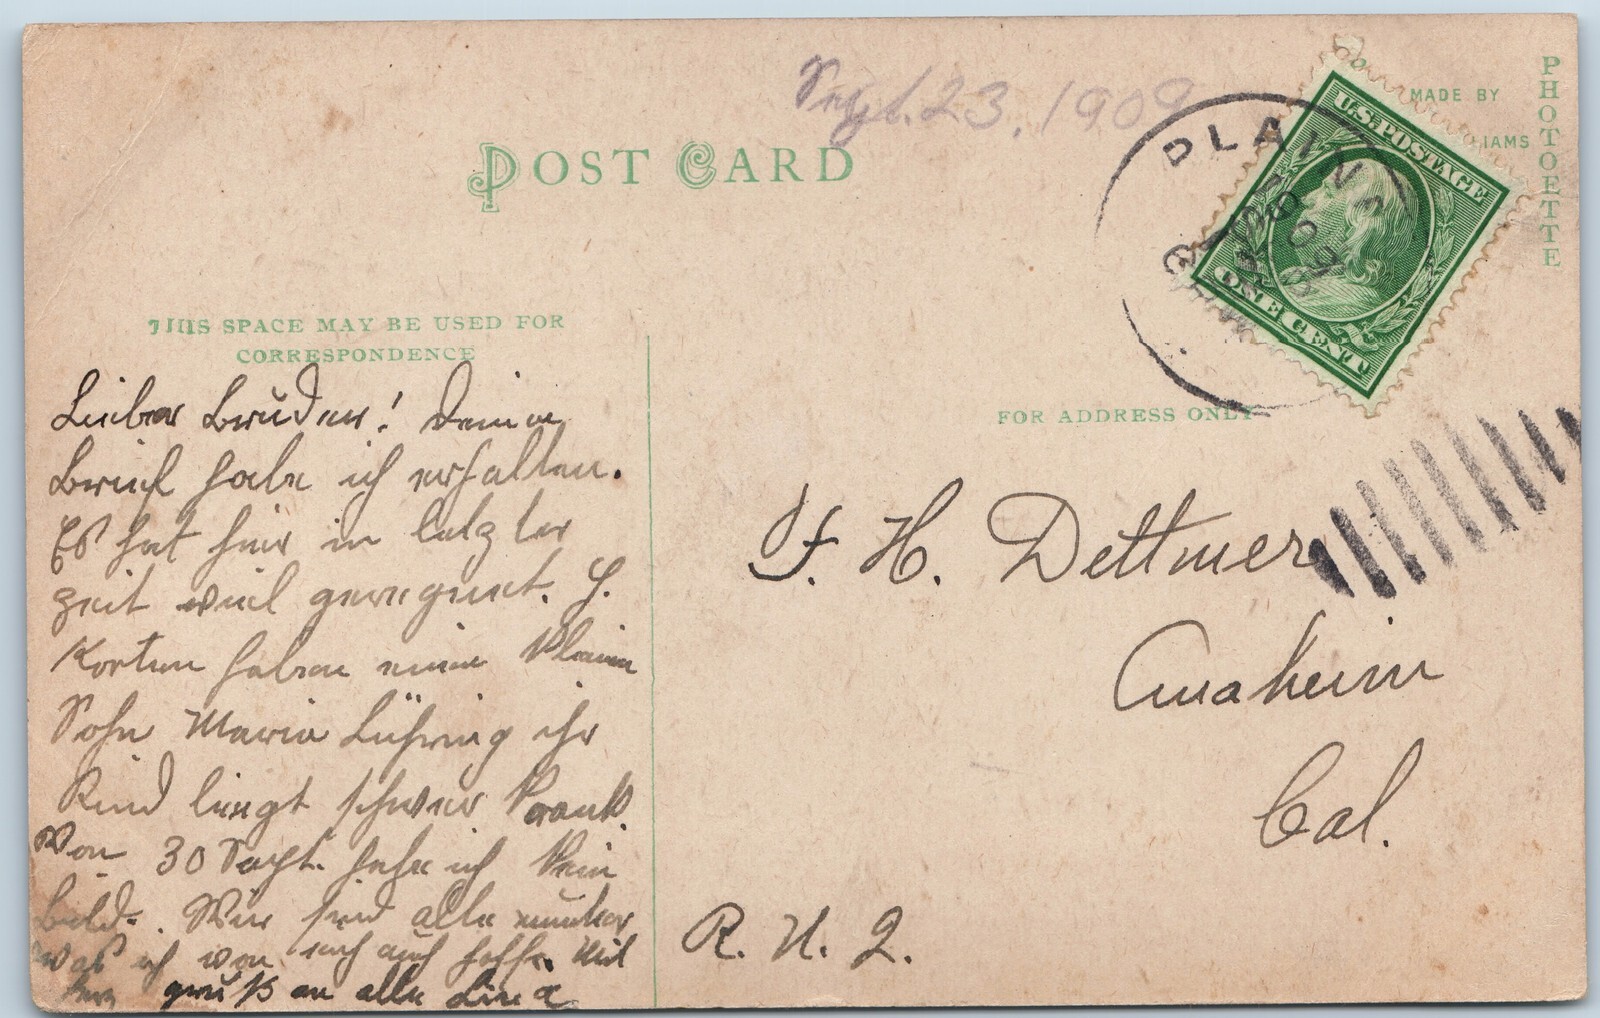 Sept. 23. 1909
POST CARD
MADE BY
IAMS
PHOTOETTE
PLAIN
U.S. POSTAGE
ONE CENT
THIS SPACE MAY BE USED FOR
CORRESPONDENCE
FOR ADDRESS ONLY
Lieber Bruder! Deinen
Brief habe ich erhalten.
Es hat hier in letzter
Zeit viel geregnet. H.
Korten haben einen kleinen
Sohn Maria Lühring ihr
Kind liegt schwer krank.
Von 30 Sept. habe ich kein
Bild. Wir sind alle munter
was ich von euch auch hoffe. Mit
gruß an alle Lina
F. H. Dettmer
Anaheim
Cal.
R. N. 2.